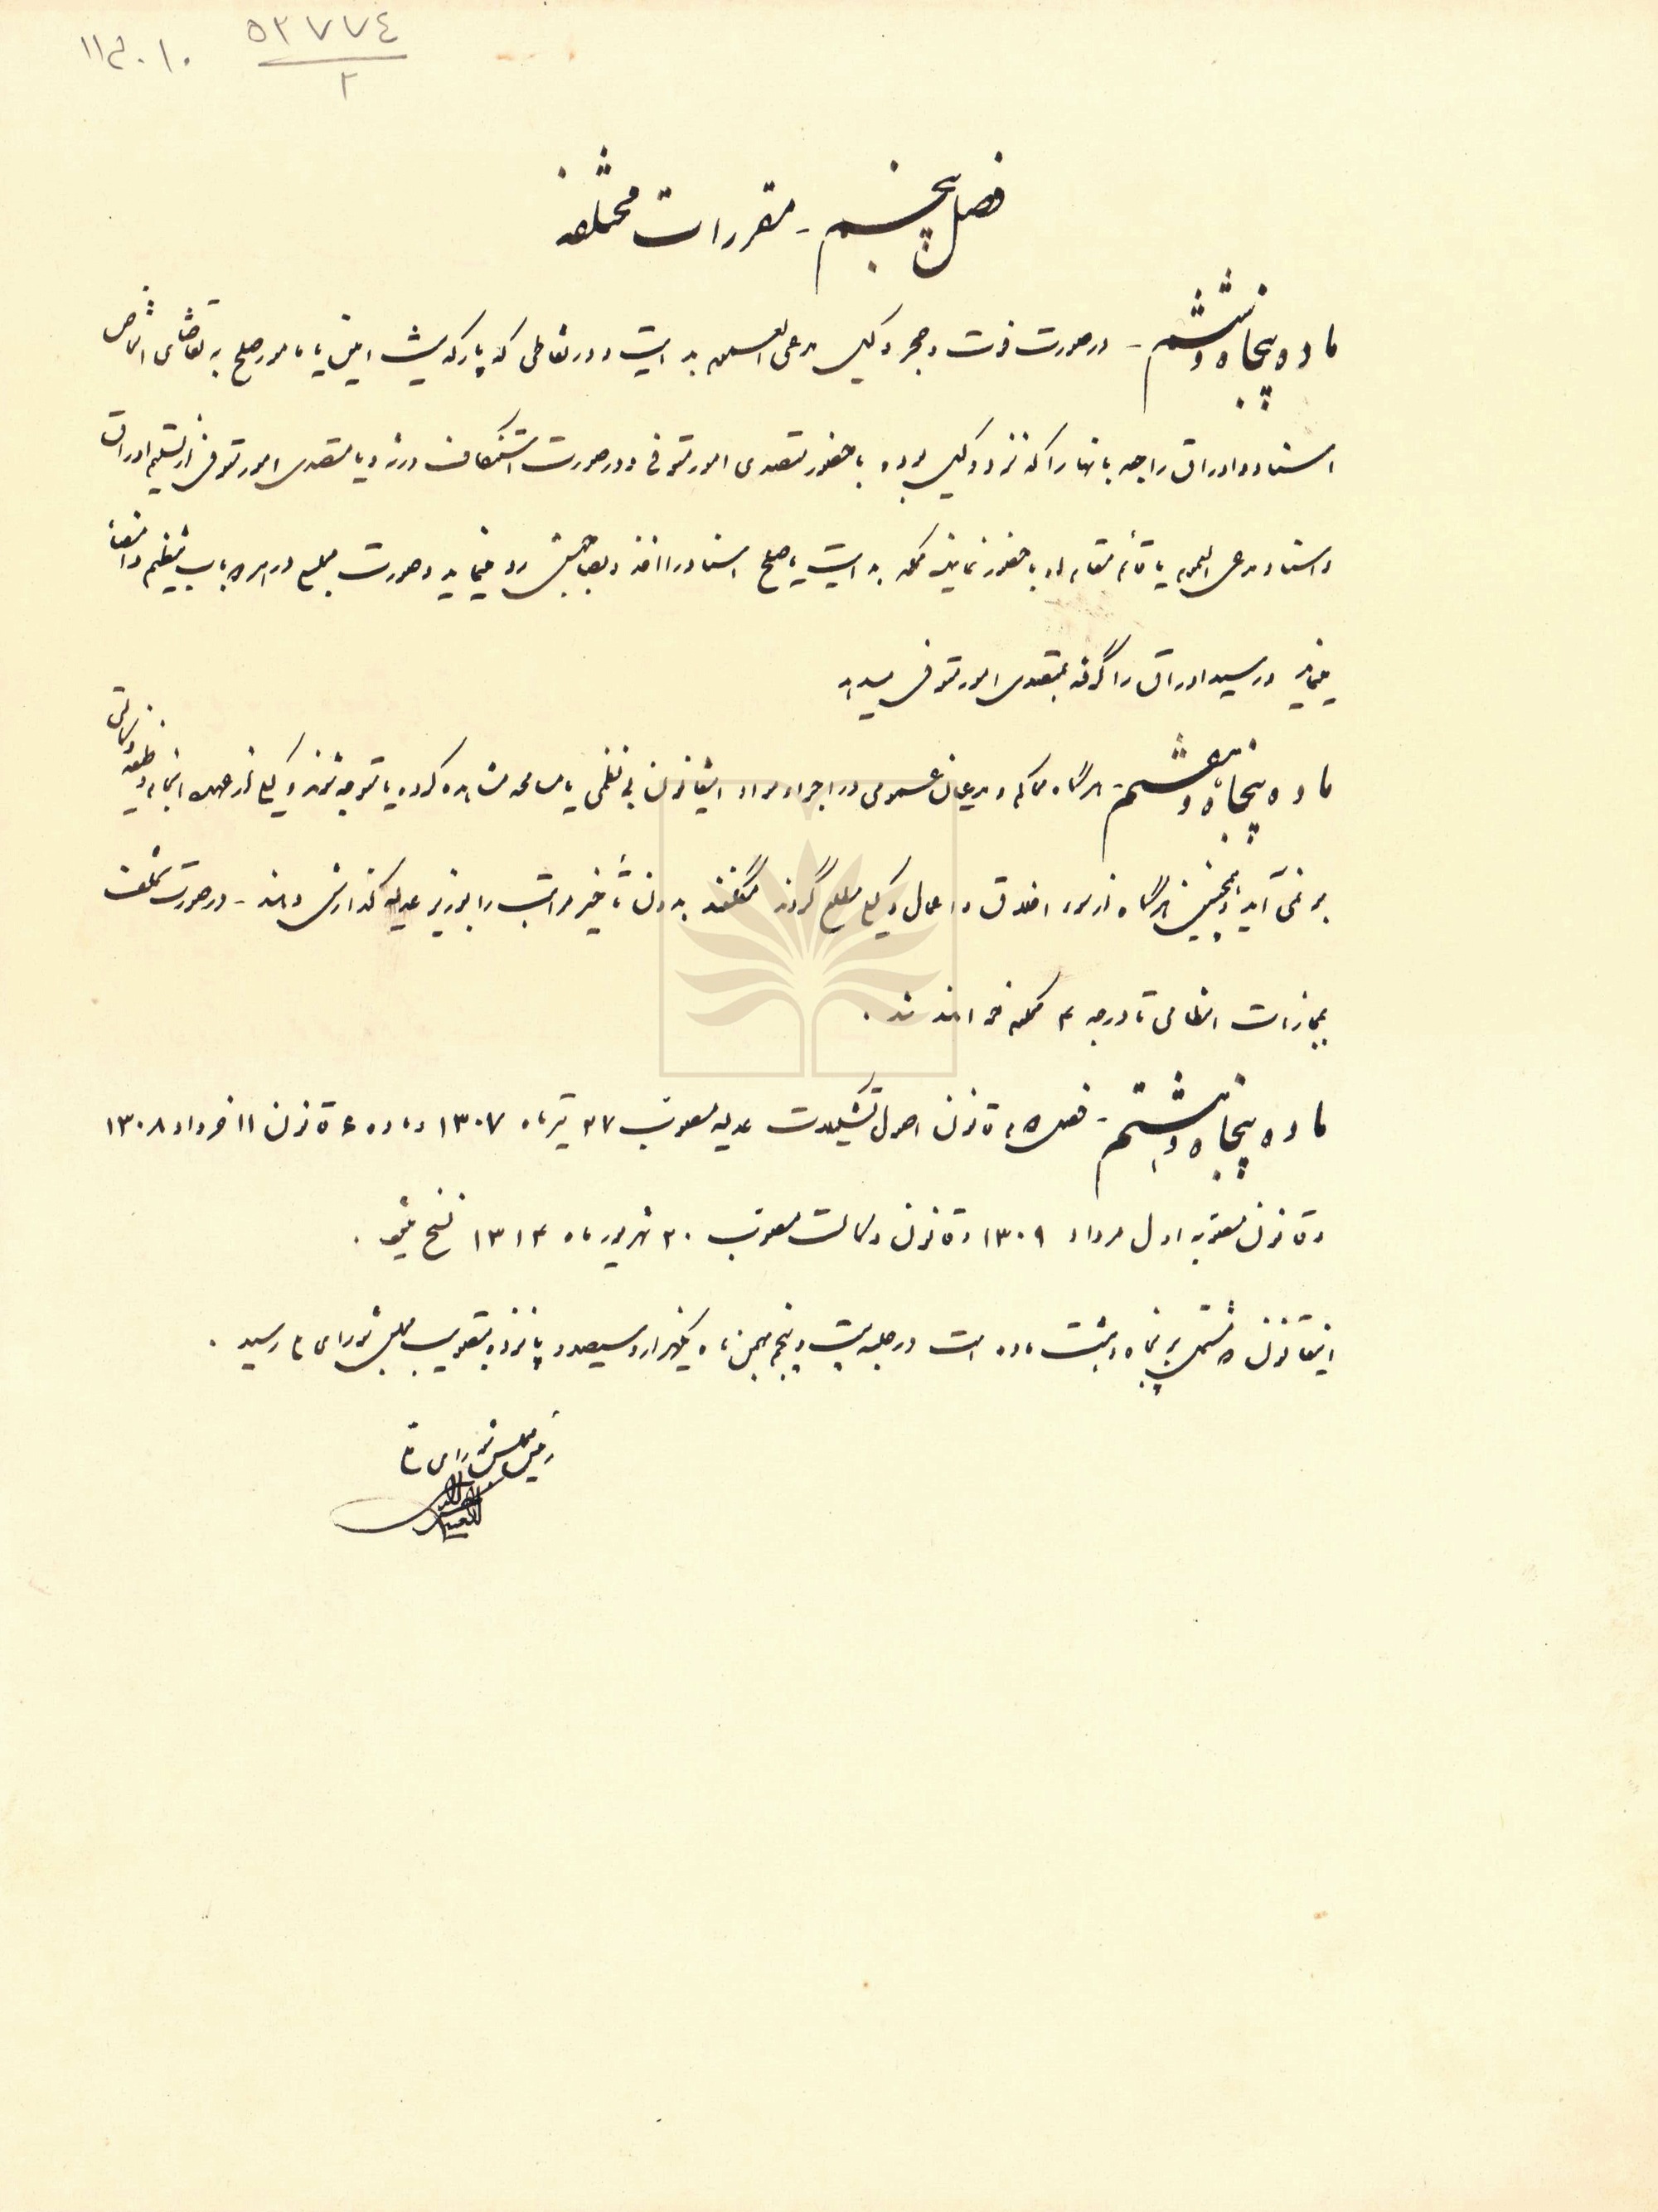 ۵۲۷۷۴
۲
فصل پنجم - مقررات مختلفه
ماده پنجاه و ششم - در صورت فوت و حجر وکیل مدعی العموم بدایت و در نقاطی که پارکه نیست امین یا مأمور صلح به تقاضای اشخاص
اسناد و اوراق راجعه بآنها را که نزد وکیل بوده با حضور متصدی امور متوفی و در صورت استنکاف ورثه و یا متصدی امور متوفی از تسلیم اوراق
و اسناد مدعی العموم یا قائم مقام او با حضور نماینده محکمه بدایت یا صلح اسناد را اخذ و بصاحبش رد مینماید و صورت مجلسی در این باب تنظیم و امضاء
مینماید و رسید اوراق را گرفته بمتصدی امور متوفی میدهد
ماده پنجاه و هفتم - هرگاه محاکم و مدعیان عمومی در اجراء مواد این قانون بی نظمی یا مسامحه مشاهده کرده یا متوجه شوند وکیلی از عهده انجام وظیفه وکالتی
بر نمی آید و همچنین هرگاه از سوء اخلاق و اعمال وکیلی مطلع گردند مکلفند بدون تأخیر مراتب را بوزیر عدلیه گذارش دهند - در صورت تخلف
بمجازات انتظامی تا درجه ۴ محکوم خواهند شد .
ماده پنجاه و هشتم - فصل ۵ قانون اصول تشکیلات عدلیه مصوب ۲۷ تیرماه ۱۳۰۷ و ماده ۶ قانون ۱۱ خرداد ۱۳۰۸
و قانون مصوبه اول مرداد ۱۳۰۹ و قانون وکالت مصوب ۲۰ شهریور ماه ۱۳۱۴ نسخ میشود .
این قانون که مشتمل بر پنجاه و هشت ماده است در جلسه بیست و پنجم بهمن ماه یکهزار و سیصد و پانزده بتصویب مجلس شورای ملی رسید .
رئیس مجلس شورای ملی